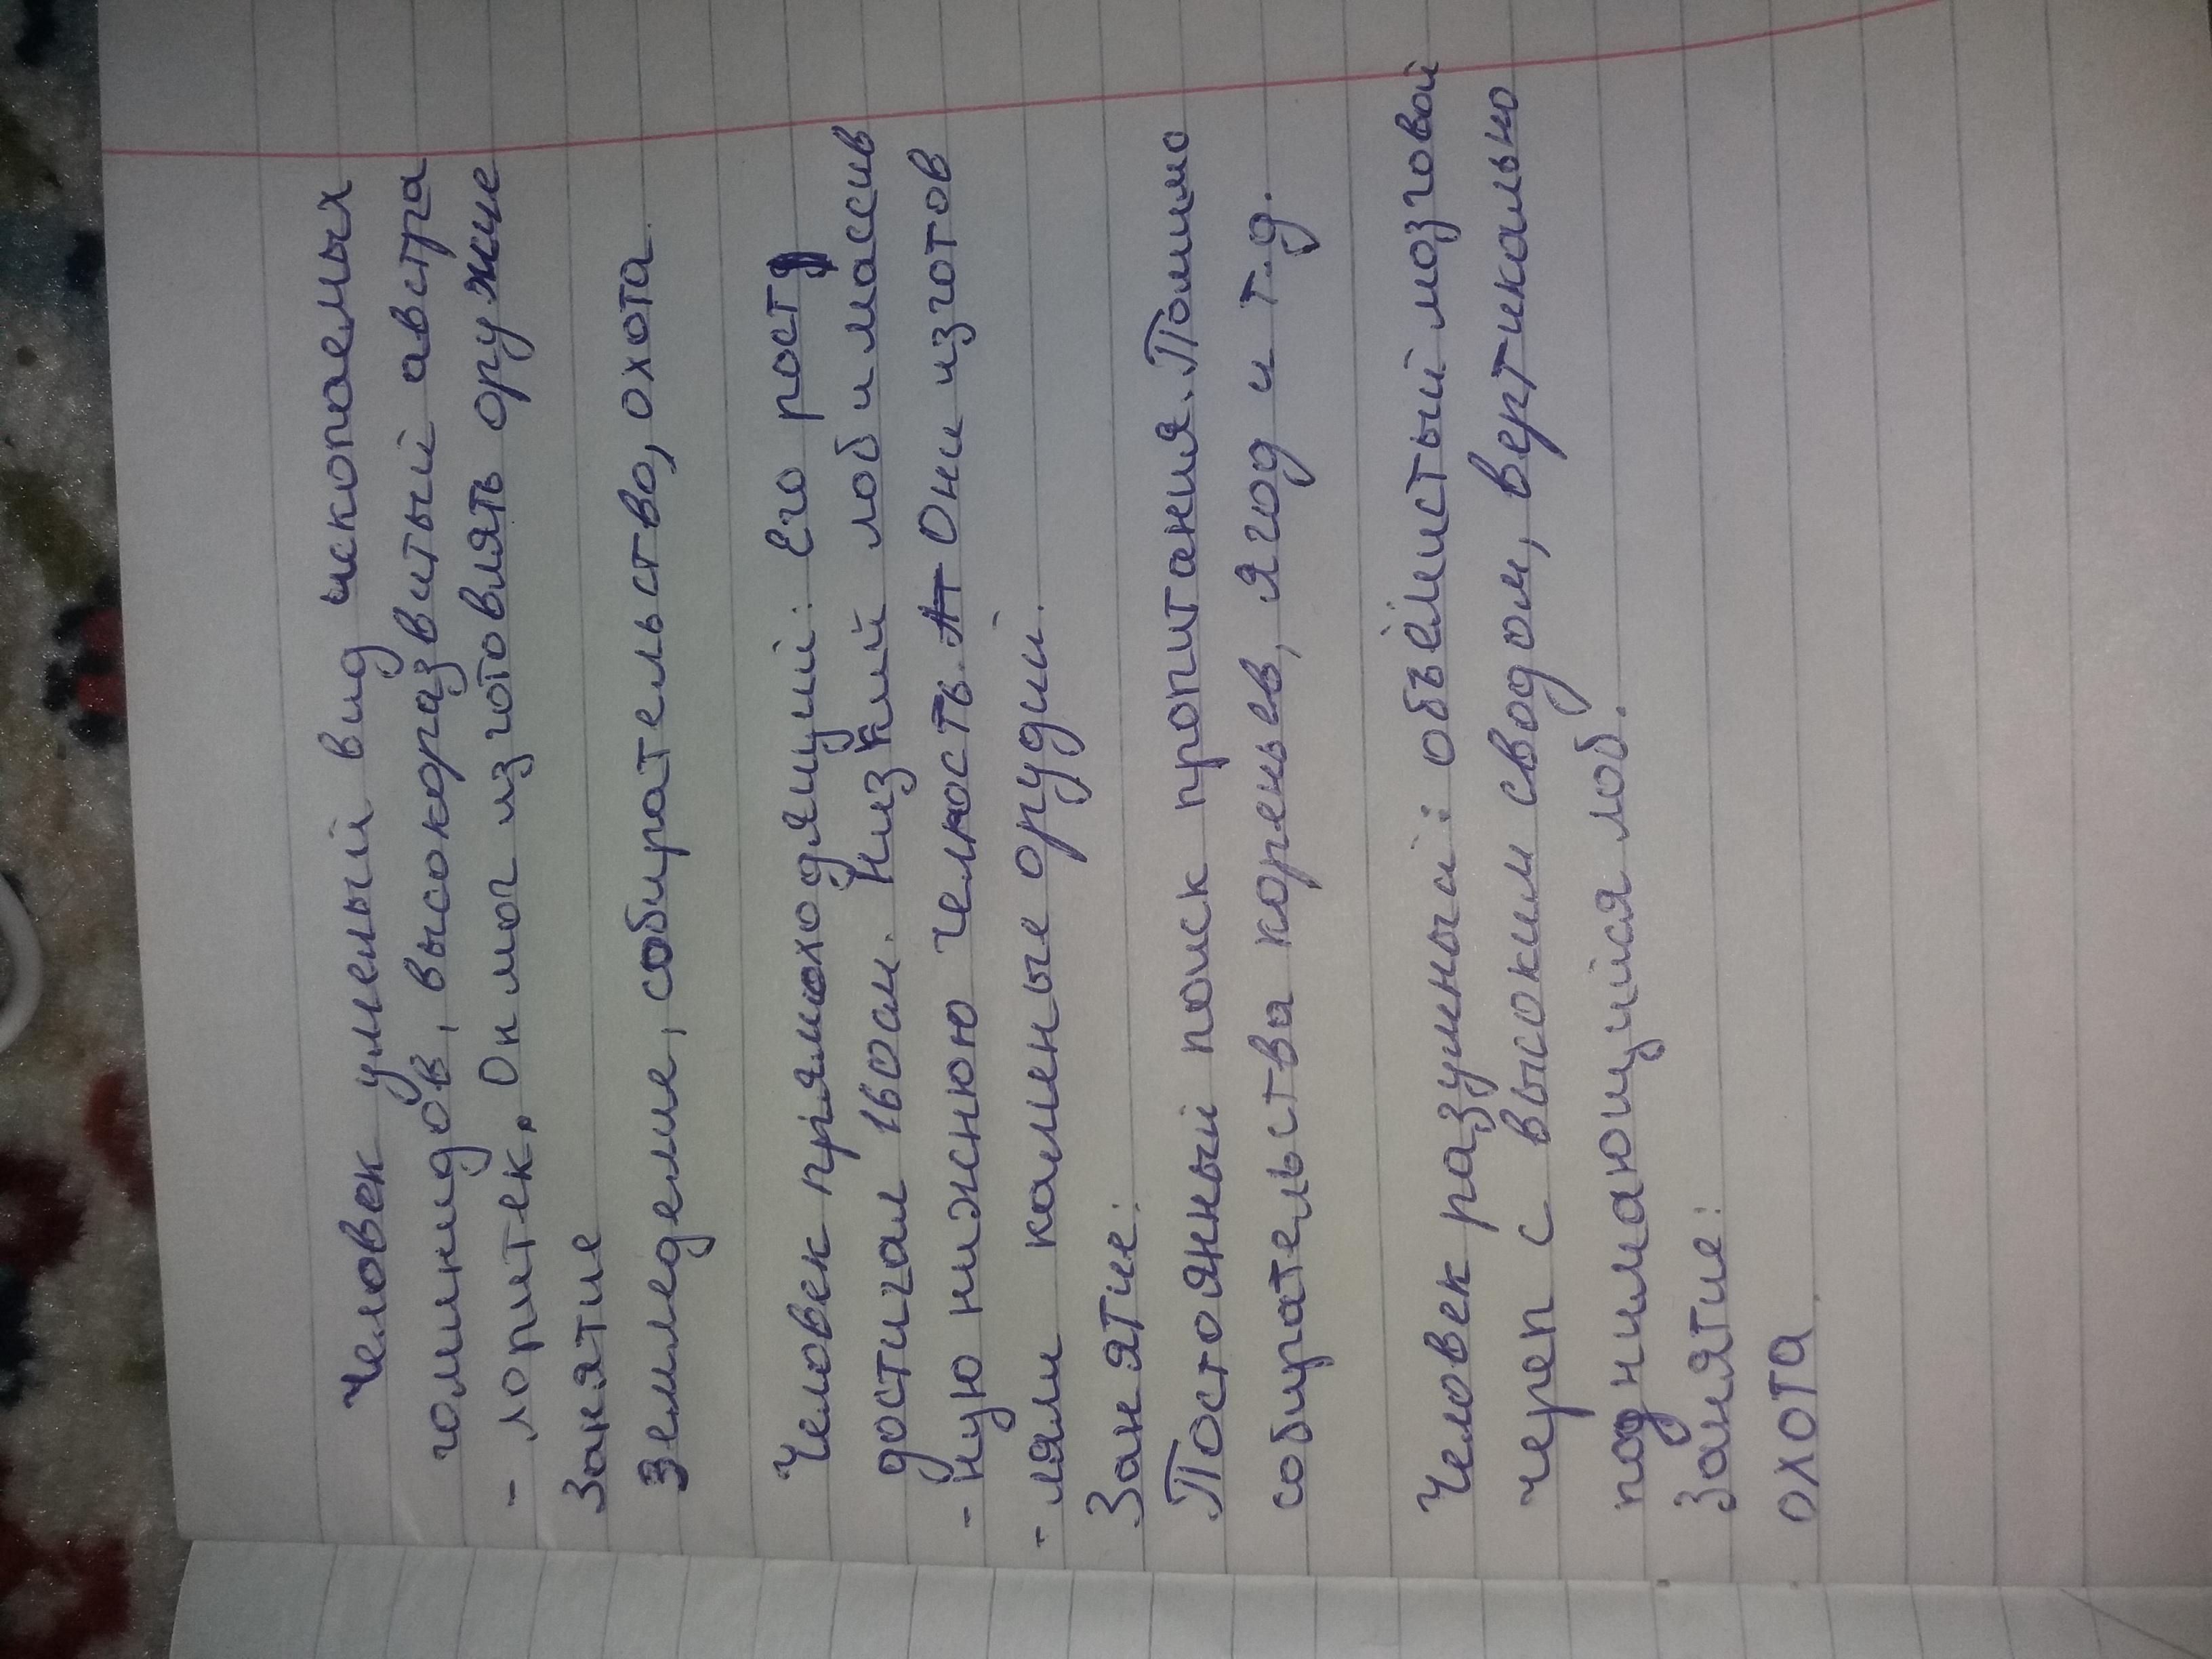 Человек умелый вид ископаемых
гоминидов, высокоразвитый австра
- лопитек. Он мог изготовлять оружие
Занятие
Земледелие, собирательство, охота
Человек прямоходящий: Его рост
достигал 160см. Низкий лоб и массив
- ную нижнюю челюсть. Они изготов
- ляли каменные орудий.
Занятие:
Постоянный поиск пропитания. Помимо
собирательства кореньев, ягод и т.д.
Человек разумный: объёмистый мозговой
череп с высоким сводом, вертикально
поднимающийся лоб.
Занятие:
охота